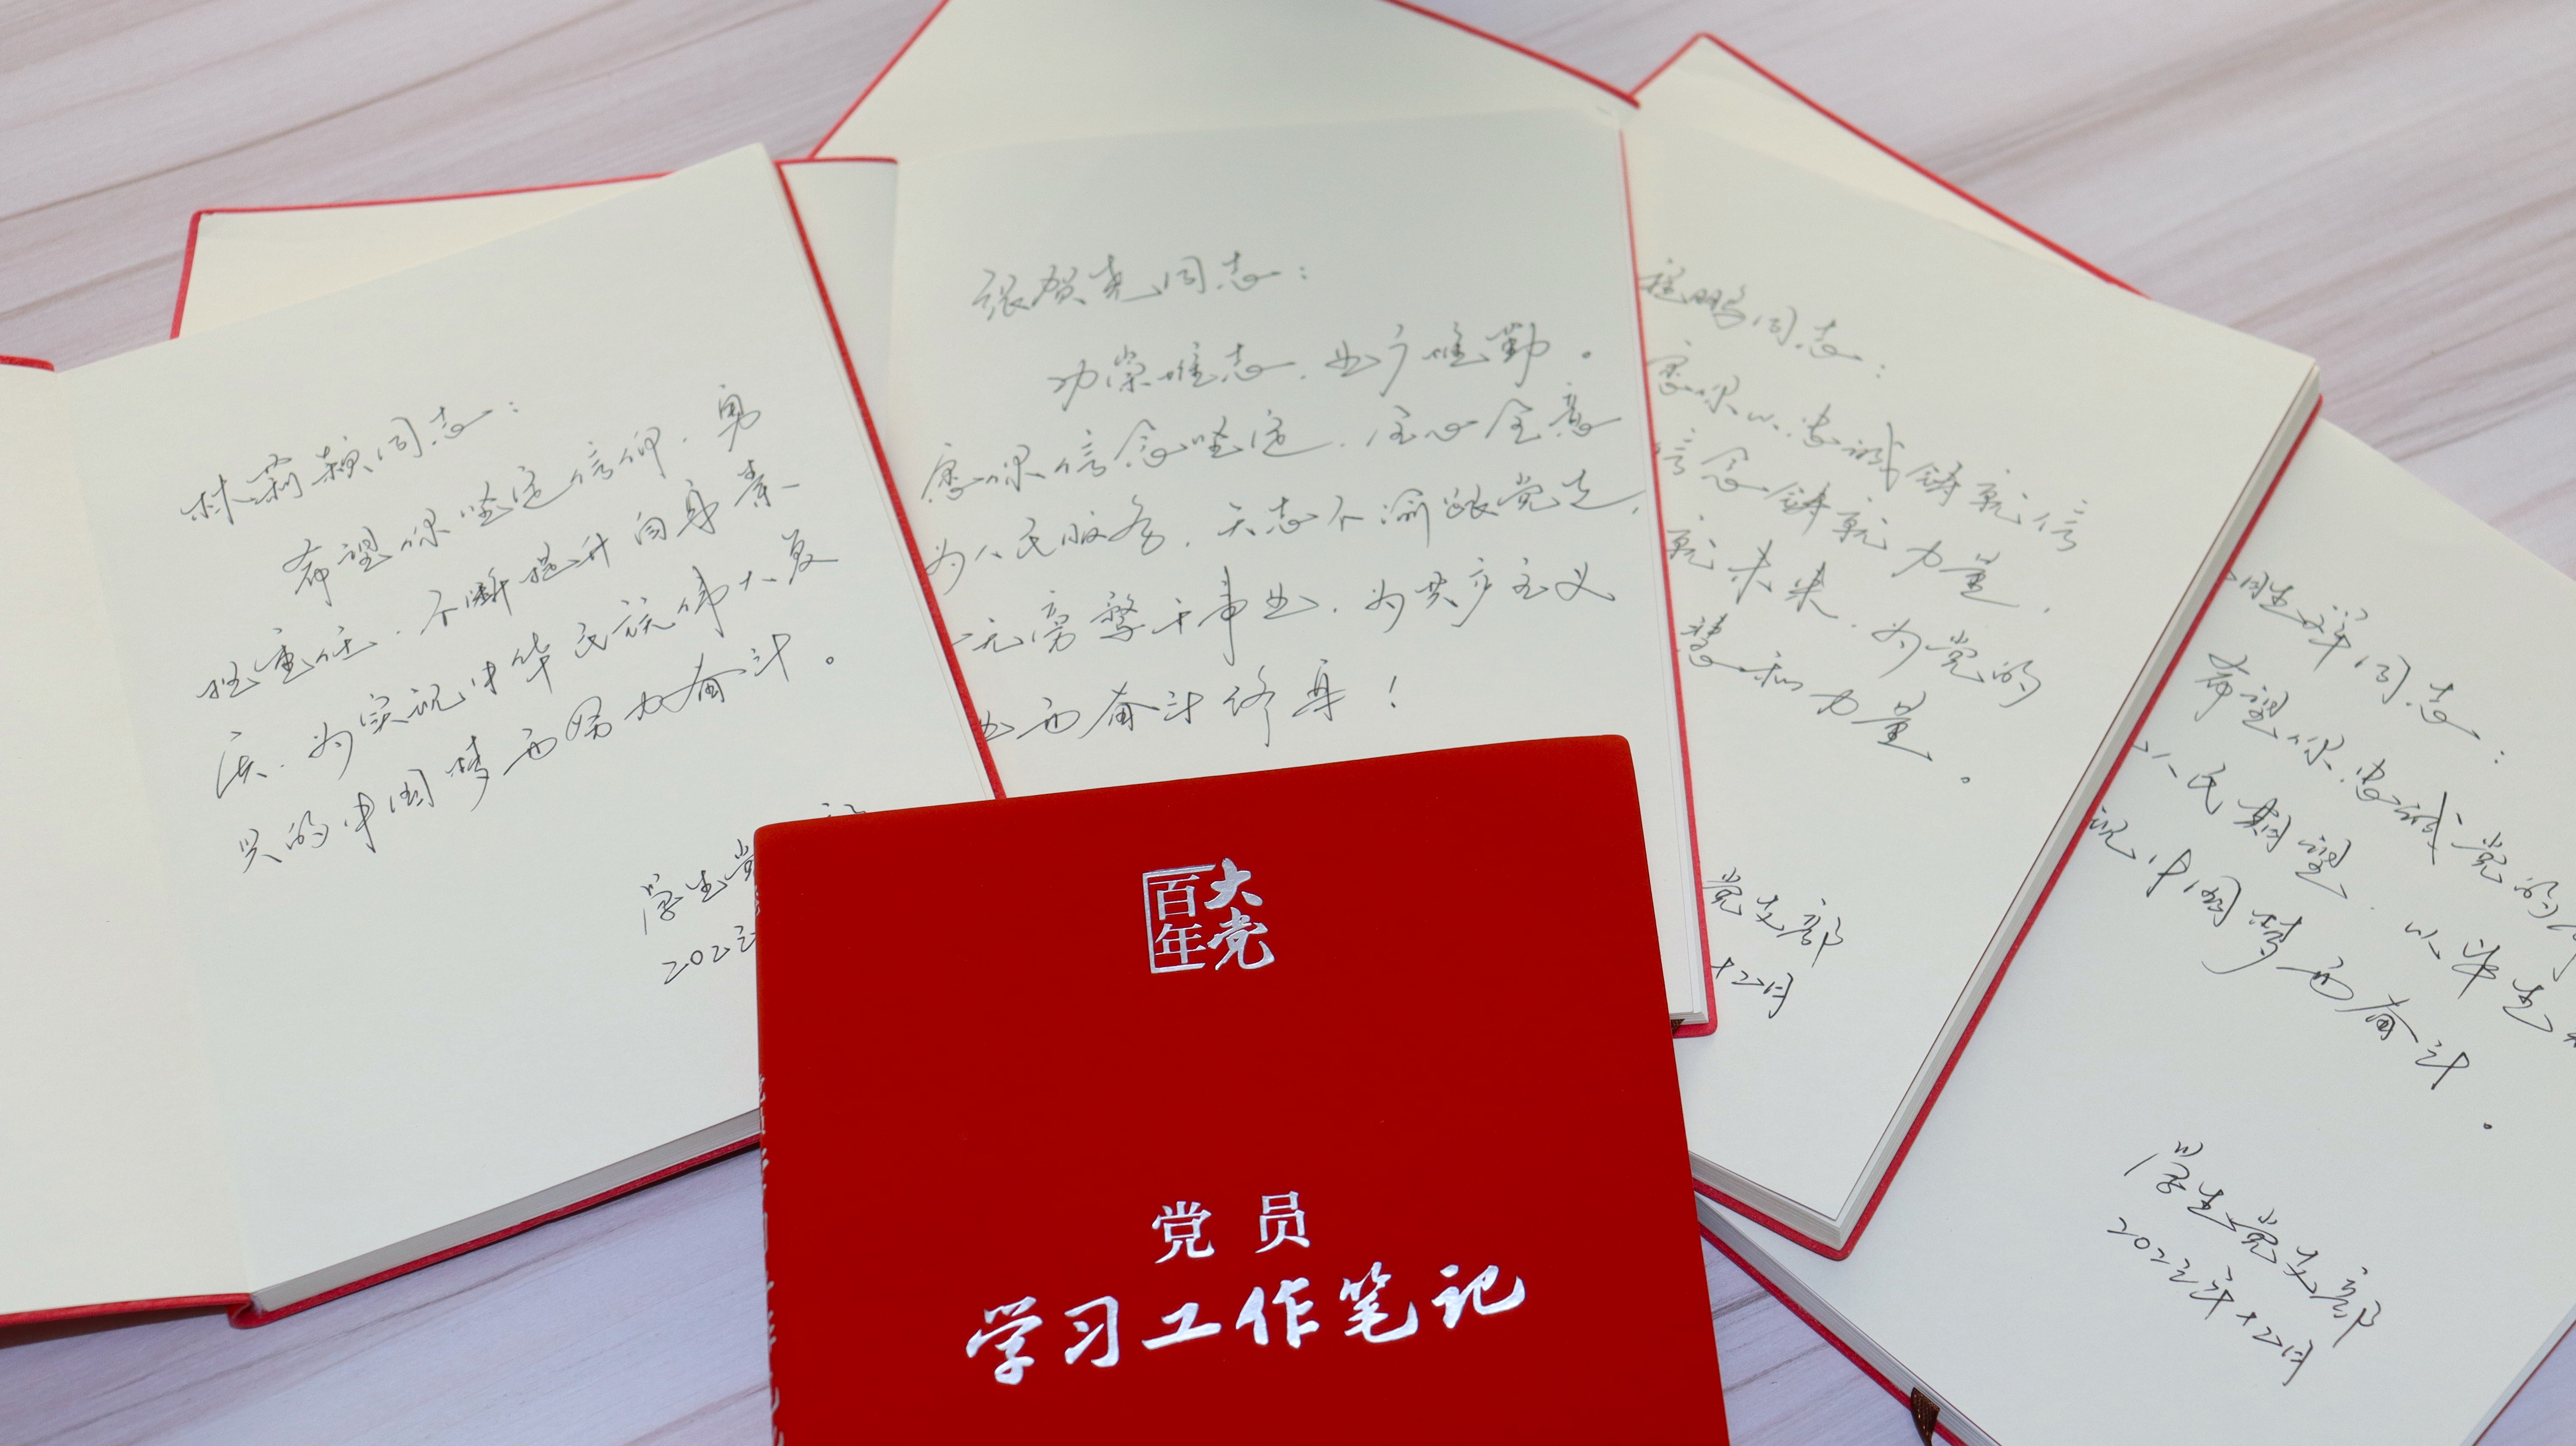 林莉颖同志：
希望你坚定信仰，勇
担重任，不断提升自身素
质，为实现中华民族伟大复
兴的中国梦而努力奋斗。
学生党
2022年
张贺尧同志：
功崇唯志，业广唯勤。
愿你信念坚定，全心全意
为人民服务，矢志不渝跟党走，
一无旁骛干事业，为共产主义
业而奋斗终身！
程鹏同志：
愿你以忠诚铸就信
信念铸就力量，
就未来，为党的
慧和力量。
党支部
十二月
胜祥同志：
希望你忠诚党的
人民期望，以毕生
现中国梦而奋斗
。
学生党支部
2022年十二月
大党
百年
党员
学习工作笔记